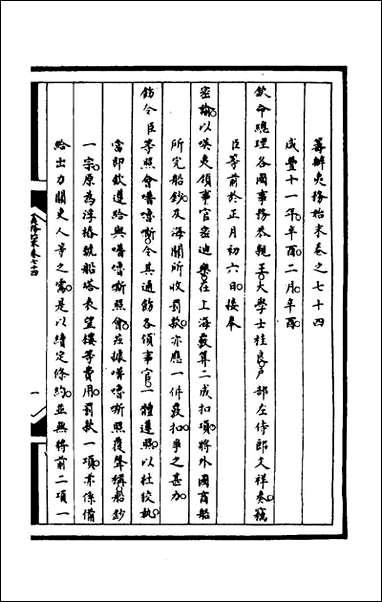 籌辦夷務始末卷之七十四
咸豐十一年辛酉二月辛酉
欽命總理各國事務恭親王大學士桂良戶部左侍郎文祥奏竊
臣等前於正月初六日接奉
密諭以㗸夷領事官密迪樂在上海覈算二成扣項將外國商船
所完船鈔及海關所收罰款亦應一併覈扣爭之甚力
飭令臣等照會嚕嘶令其通飭各領事官一體遵照以杜狡執
當即欽遵給與嚕嘶照會在據嚕嘶照覆聲稱船鈔
一宗原為浮樁號船塔表望樓等費用罰款一項亦係備
給出力關吏人等之需是以續定條約並無將前二項一
卷七十四
一